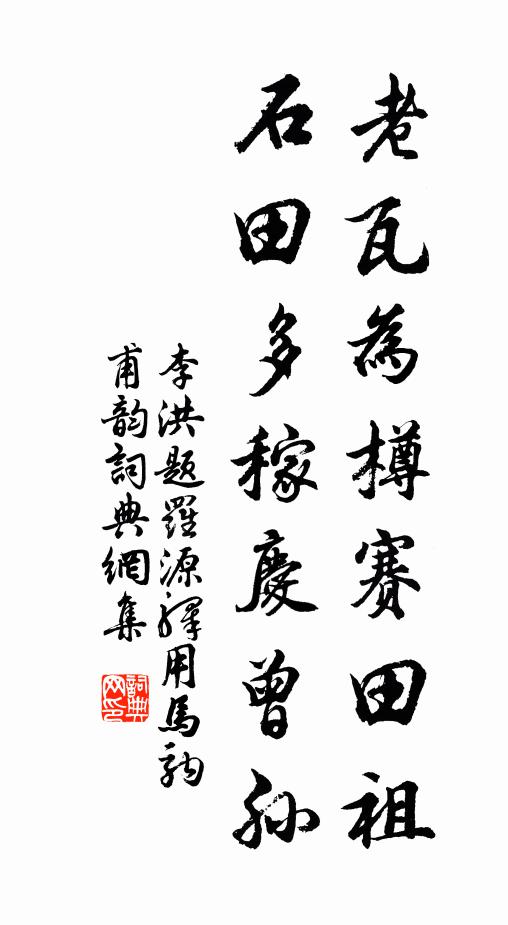 老瓦為樽賽田祖
石田多稼慶曾孫
李洪題羅源驛用馬駒
甫韵詞典網集
詞典
网印